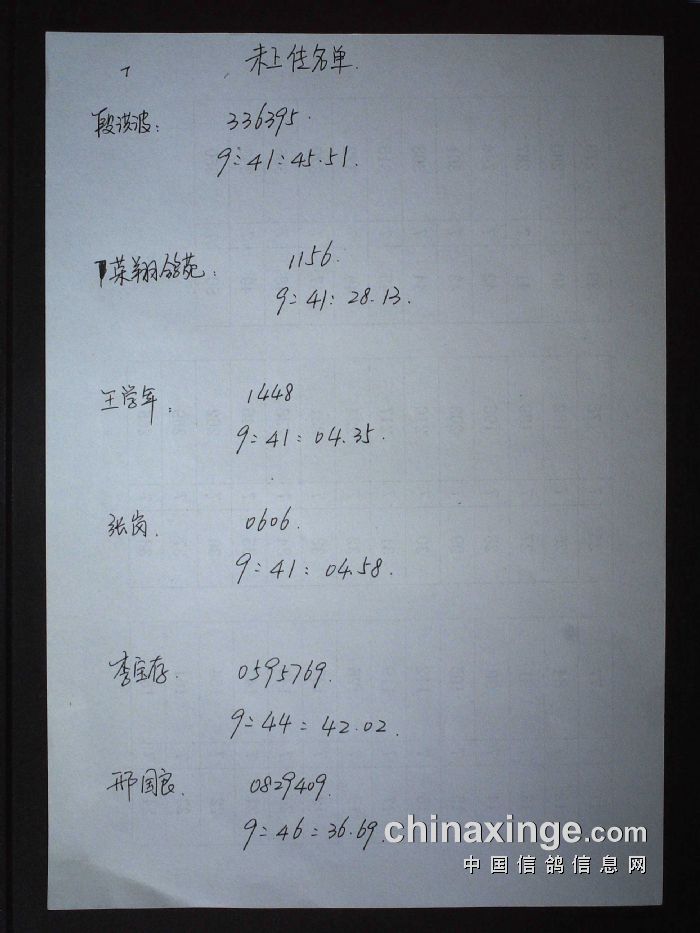 未上佳名单.
段洪波: 336395.
9:41:45.51.
荣翔鸽苑: 1156.
9:41:28.13.
王学年: 1448
9:41:04.35.
张岗. 0606.
9:41:04.58.
李宝存. 0595769.
9:44:42.02.
邢国良. 0829409.
9:46:36.69.
chinaxinge.com
中国信鸽信息网